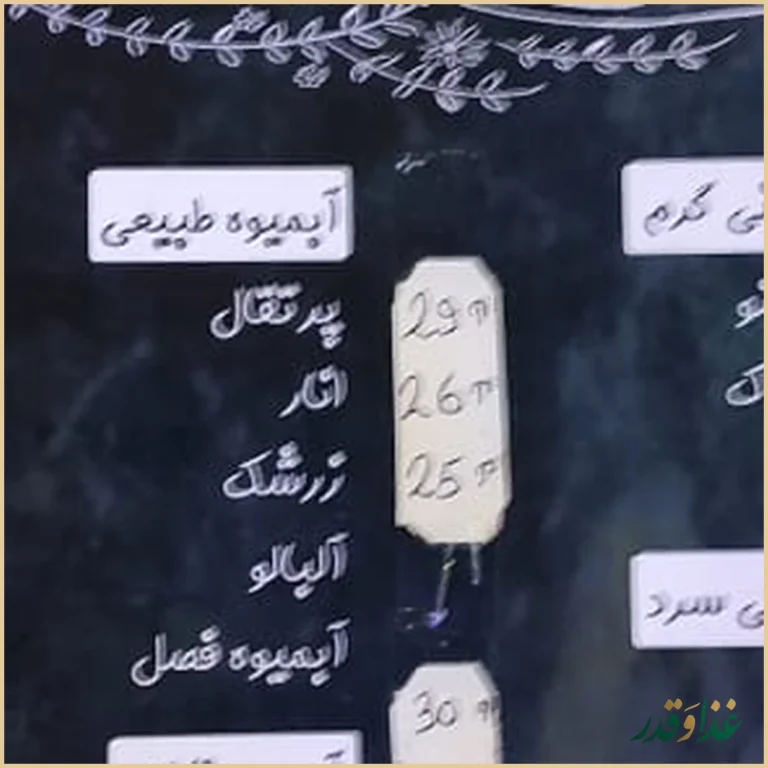 آبمیوه طبیعی
پرتقال 29
انار 26
زرشک 25
آلبالو
آبمیوه فصل
30
گرم
سرد
غذا و قدر